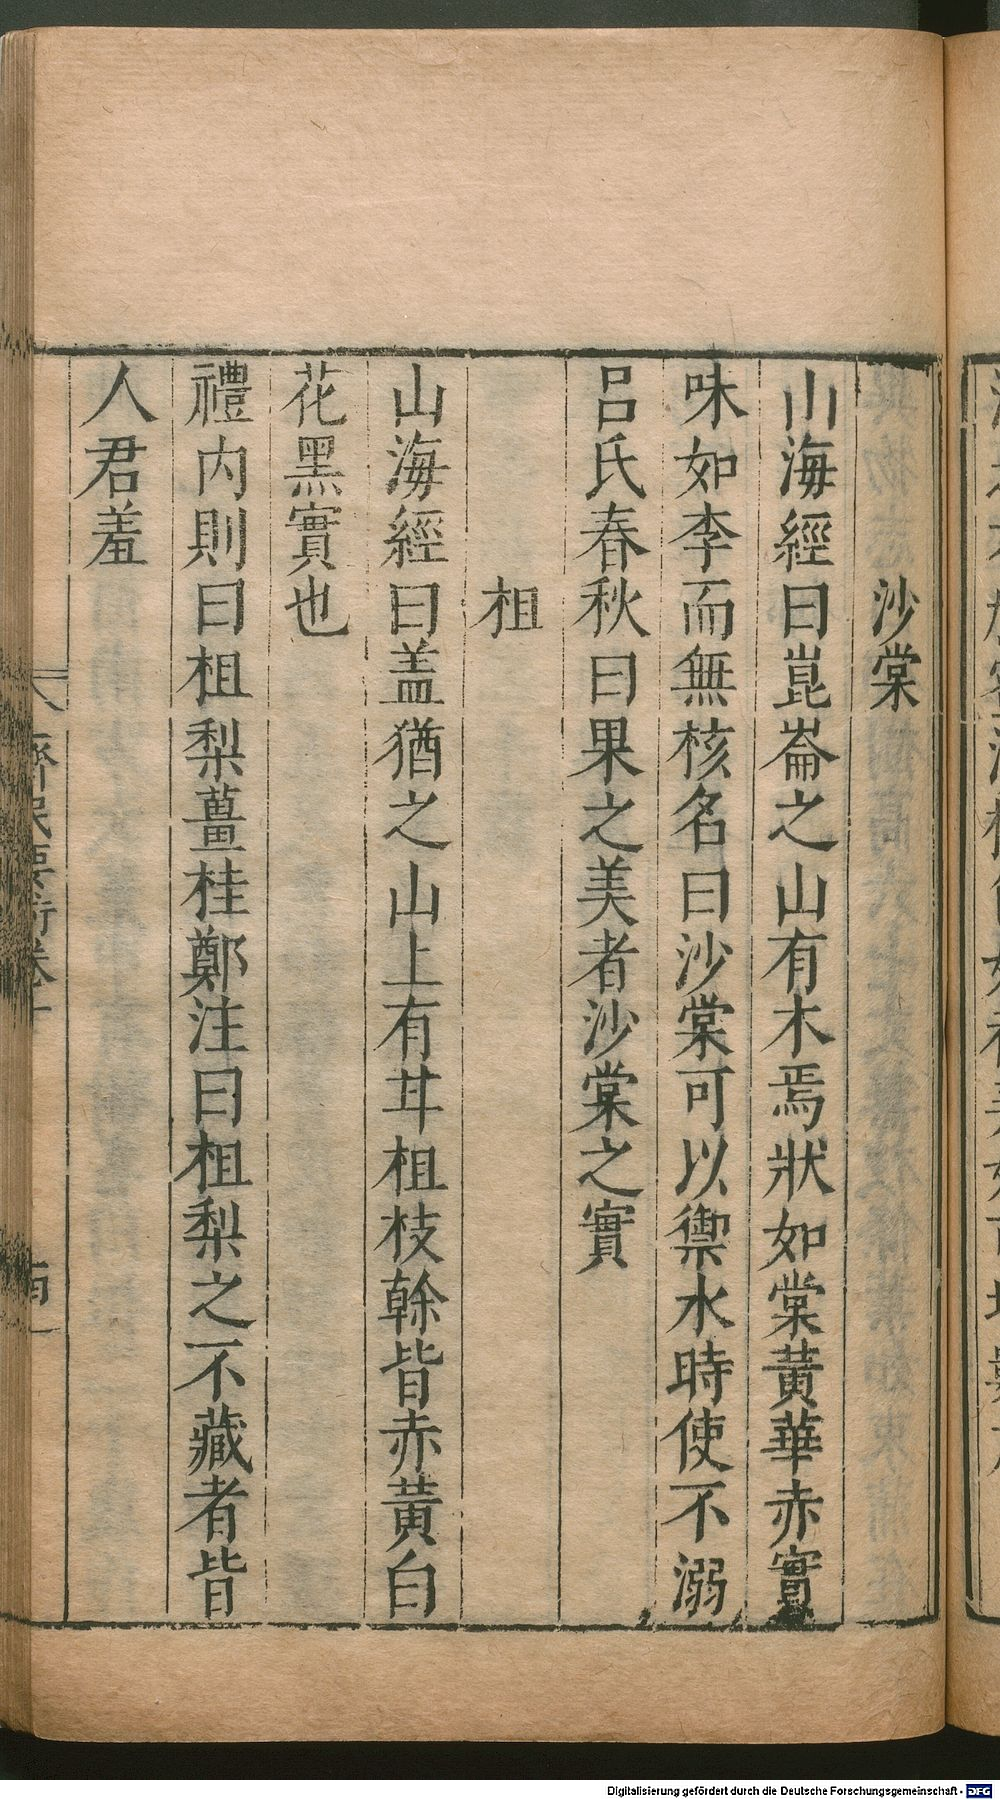 沙棠
山海經曰崑崙之山有木焉狀如棠黃華赤實
味如李而無核名曰沙棠可以禦水時使不溺
呂氏春秋曰果之美者沙棠之實
柤
山海經曰盖猶之山上有甘柤枝幹皆赤黃白
花黑實也
禮內則曰柤梨薑桂鄭注曰柤梨之不藏者皆
人君羞
齊民要術卷十
Digitalisierung gefördert durch die Deutsche Forschungsgemeinschaft - DFG